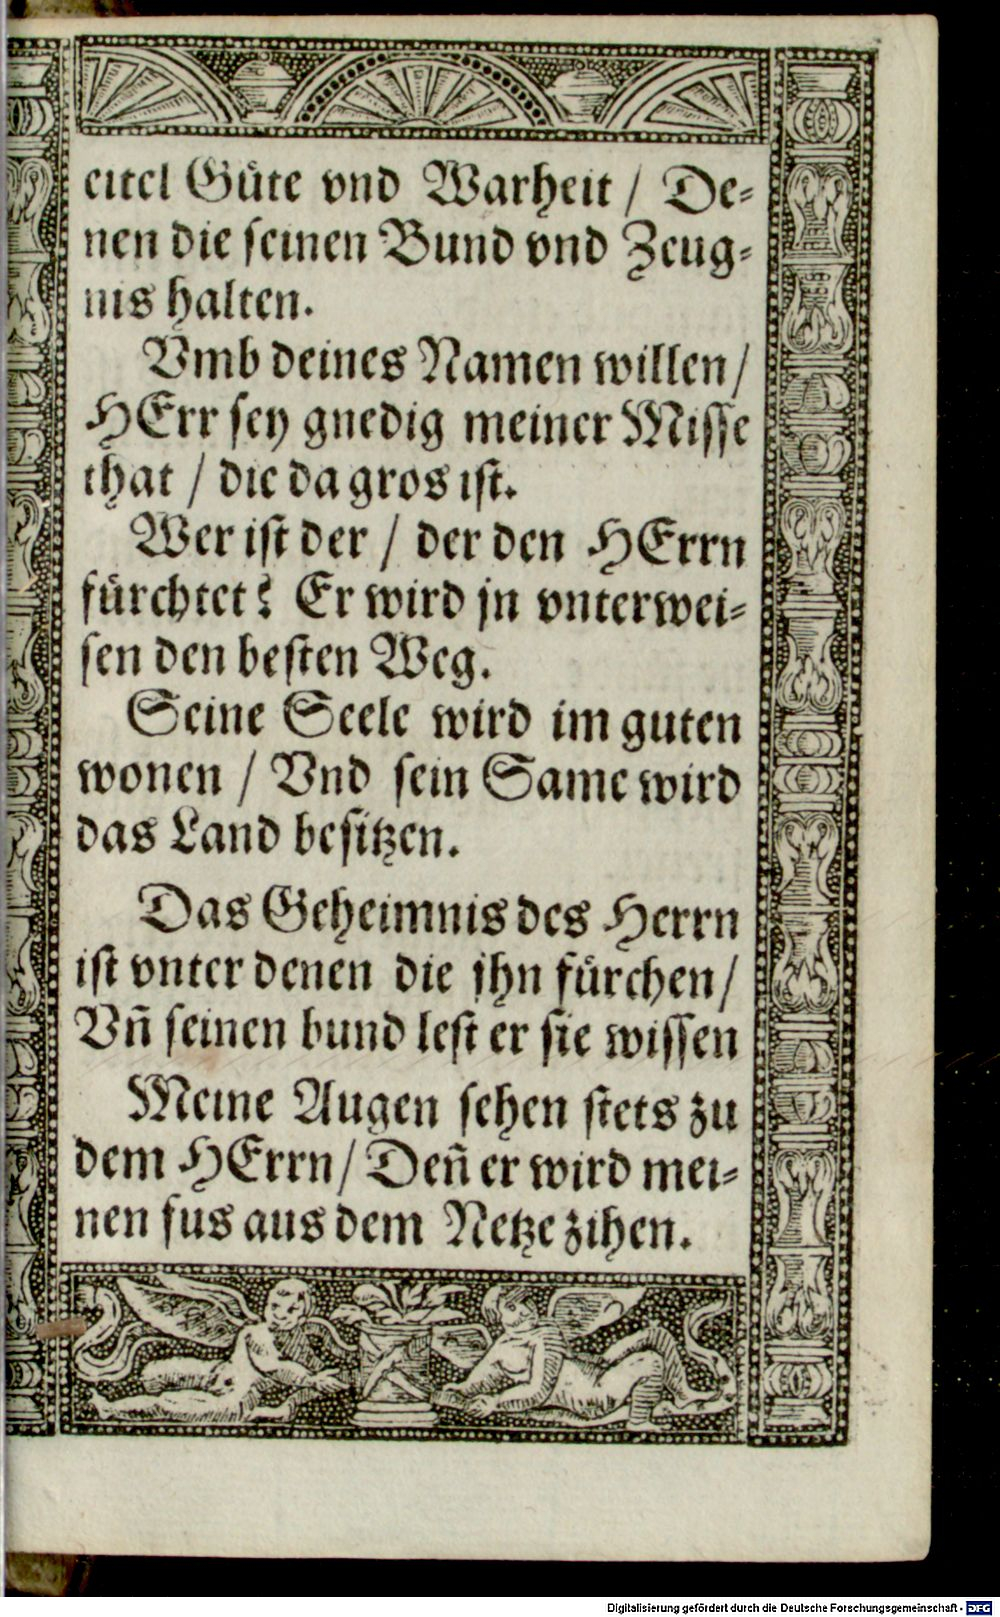 eitel Gůte vnd Warheit / De⸗
nen die seinen Bund vnd Zeug⸗
nis halten.
Vmb deines Namen willen /
HErr sey gnedig meiner Misse
that / die da gros ist.
Wer ist der / der den HErrn
fůrchtet? Er wird jn vnterwei⸗
sen den besten Weg.
Seine Seele wird im guten
wonen / Vnd sein Same wird
das Land besitzen.
Das Geheimnis des Herrn
ist vnter denen die jhn fůrchen /
Vñ seinen bund lest er sie wissen
Meine Augen sehen stets zu
dem HErrn / Deñ er wird mei⸗
nen fus aus dem Netze zihen.
Digitalisierung gefördert durch die Deutsche Forschungsgemeinschaft - DFG